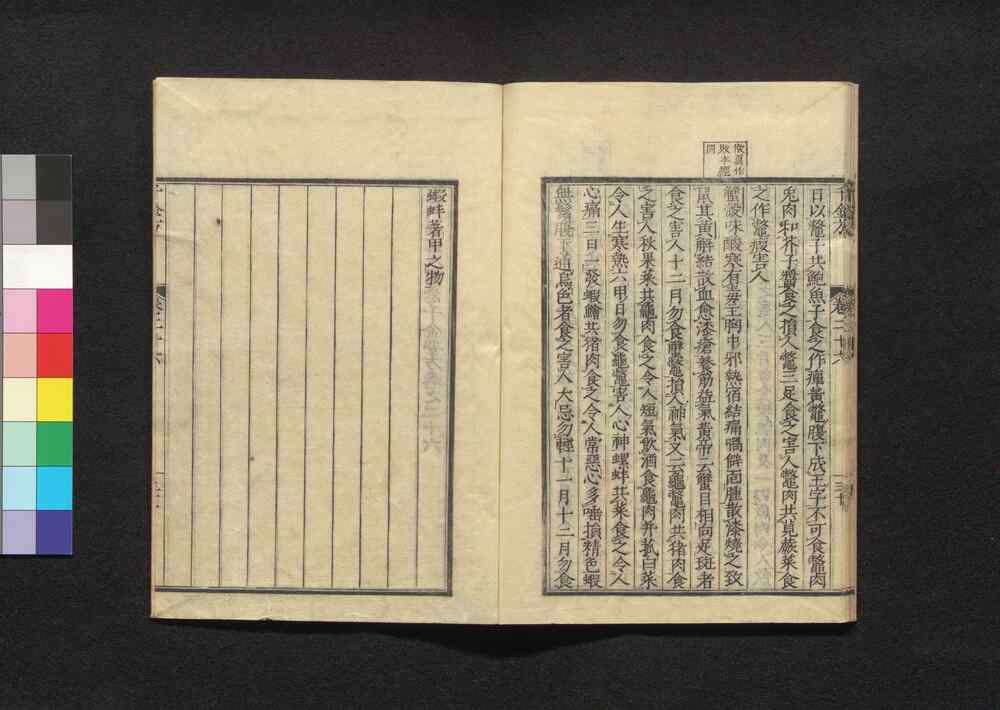 日以鼈子共鮑魚子食之作癉黃鼈腹下成王字不可食鼈肉
兎肉和芥子醬食之損人鼈三足食之害人鼈肉共莧蕨菜食
之作鼈瘕害人
蟹殼味酸寒有毒主胸中邪熱宿結痛喎僻面腫散漆燒之致
鼠其黃解結散血愈漆瘡養筋益氣黃帝云蟹目相向足斑者
食之害人十二月勿食蟹鼈損人神氣又云龜鼈肉共猪肉食
之害人秋果菜共龜肉食之令人短氣飲酒食龜肉并菰白菜
令人生寒熱六甲日勿食龜鼈害人心神螺蚌共菜食之令人
心痛三日一發蝦鱠共猪肉食之令人常惡心多唾損精色蝦
無鬚腹下通烏色者食之害人大忌勿輕十一月十二月勿食
蝦蚌著甲之物